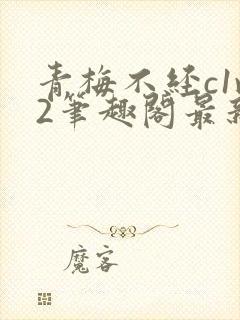 青梅不经c1v
2筆趣閣最新
魔客